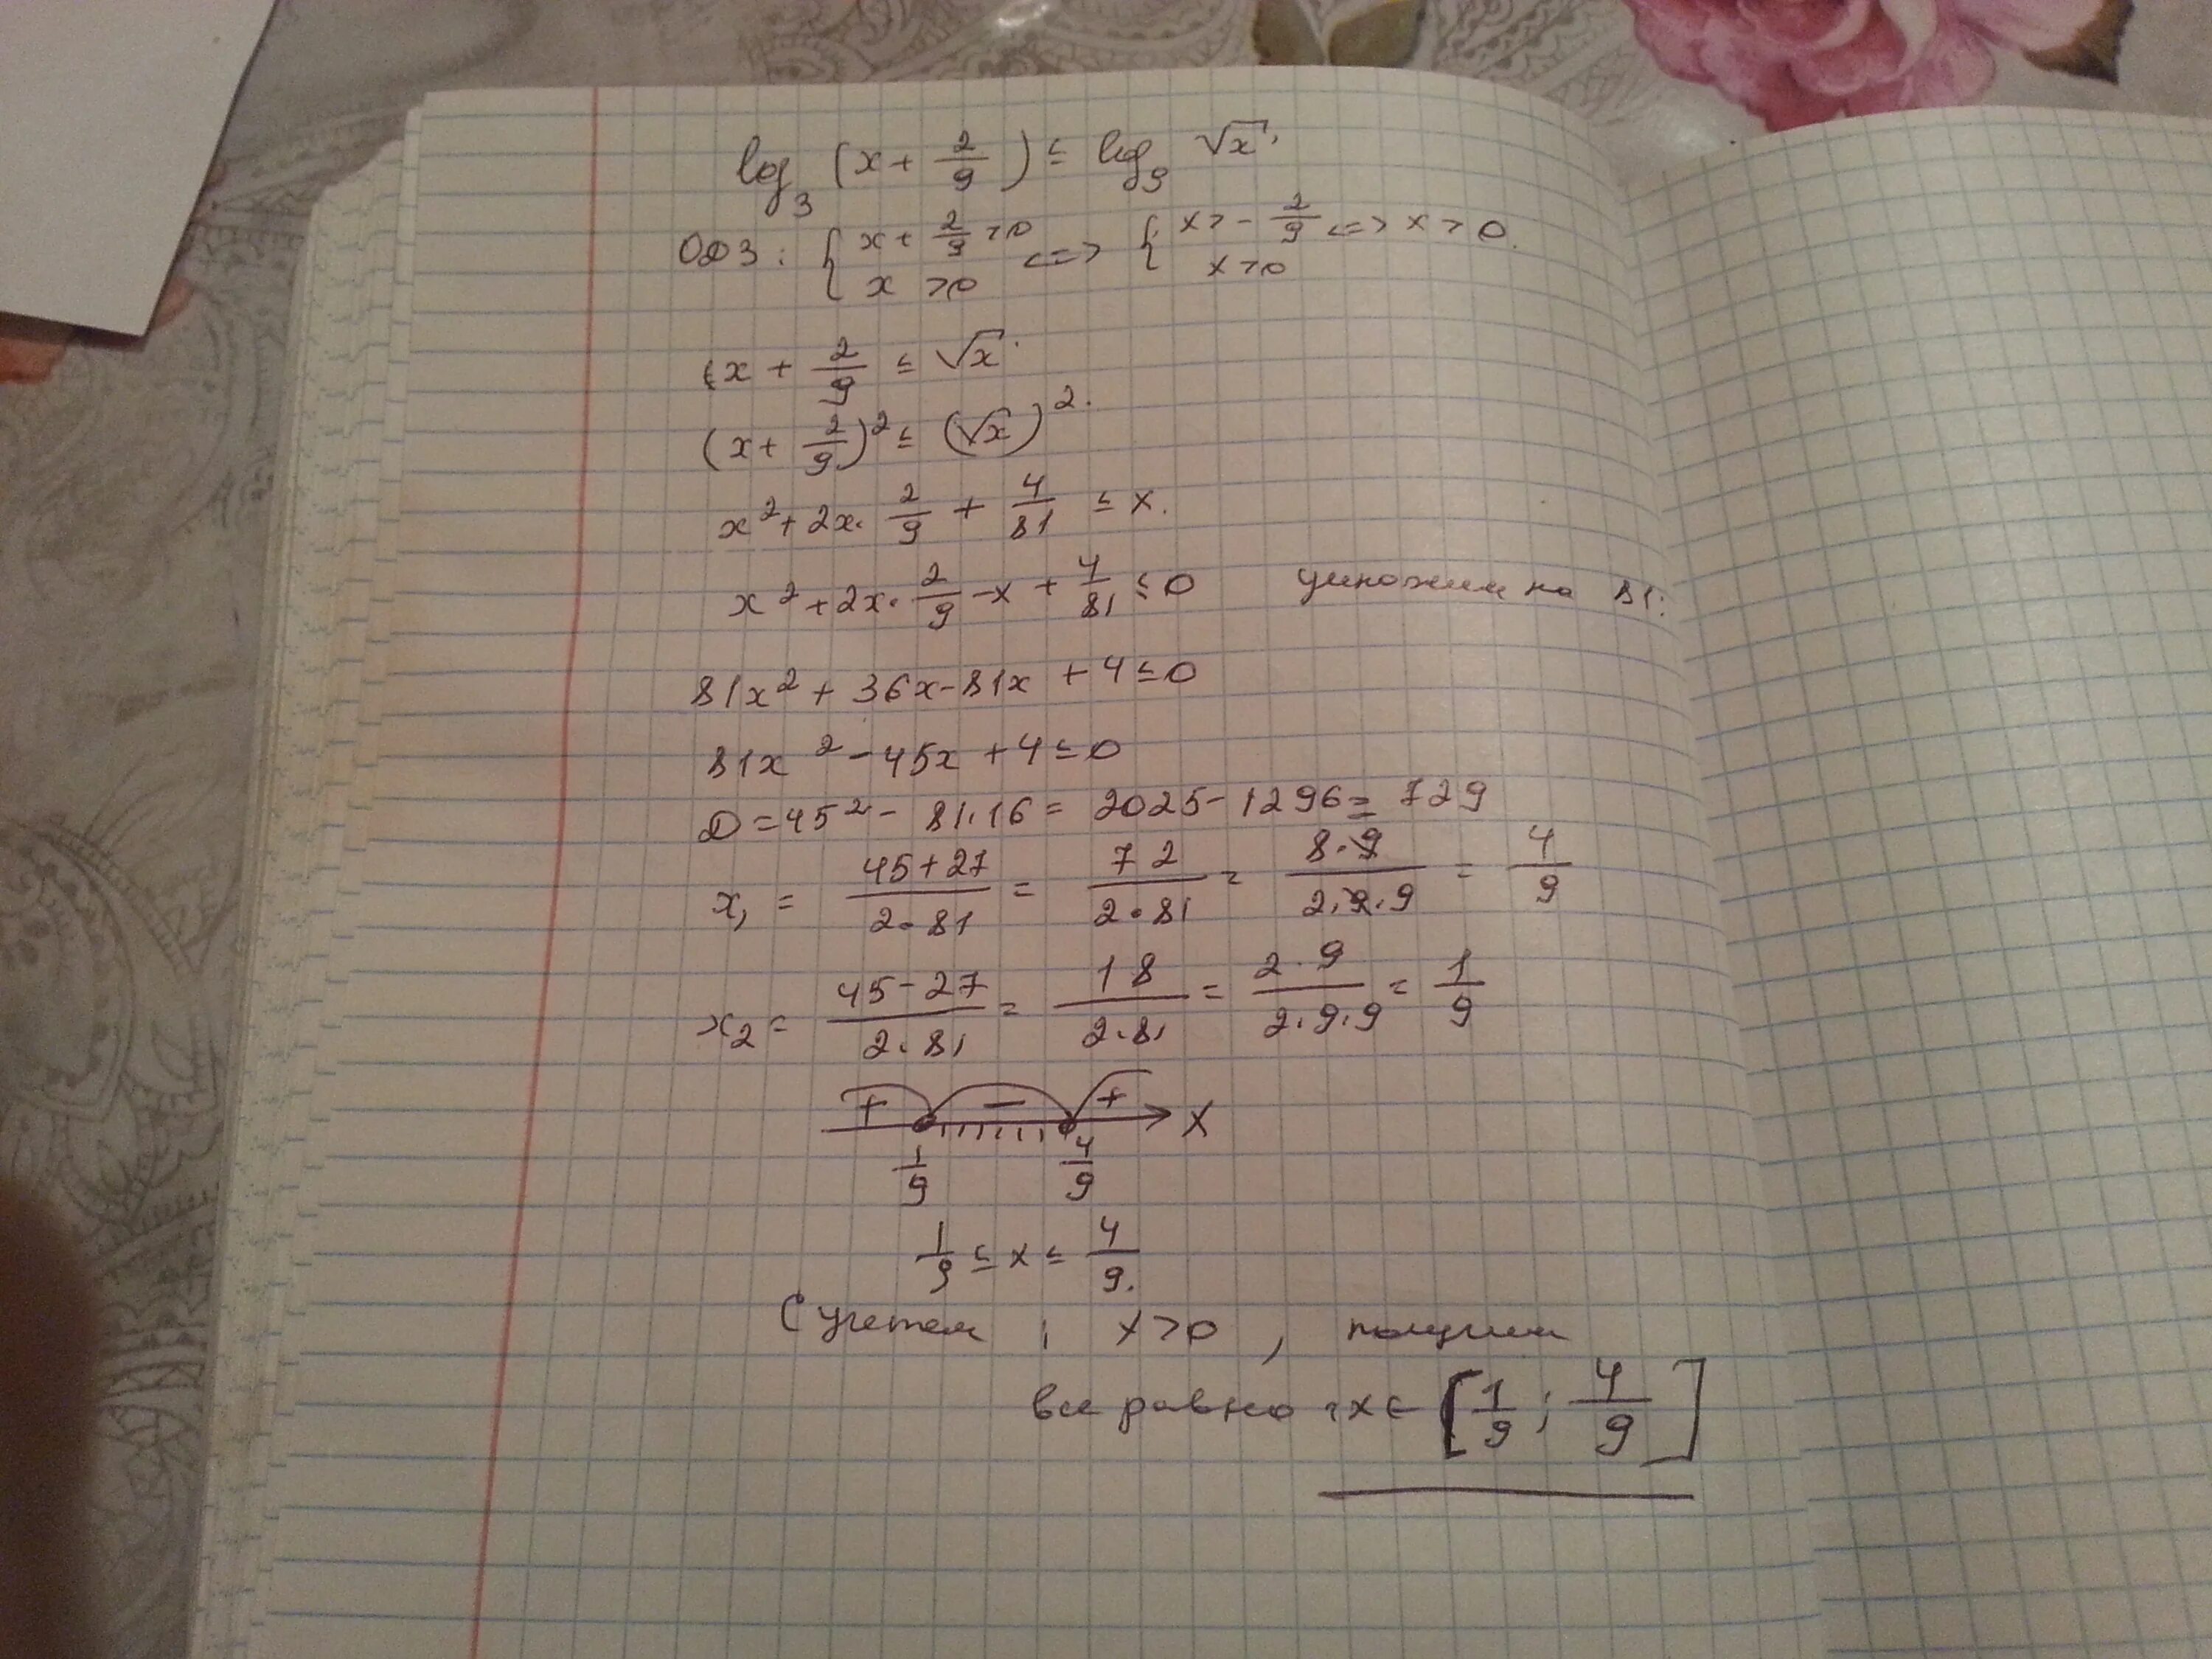 log₃ (x + 2/9) ≤ log₉ √x
ОДЗ: { x + 2/9 > 0, x > 0 <=> { x > - 2/9, x > 0 <=> x > 0.
x + 2/9 ≤ √x
(x + 2/9)² ≤ (√x)².
x² + 2x · 2/9 + 4/81 ≤ x.
x² + 2x · 2/9 - x + 4/81 ≤ 0 умножим на 81:
81x² + 36x - 81x + 4 ≤ 0
81x² - 45x + 4 ≤ 0
D = 45² - 81·16 = 2025 - 1296 = 729
x₁ = (45 + 27)/(2·81) = 72/(2·81) = (8·9)/(2·9·9) = 4/9
x₂ = (45 - 27)/(2·81) = 18/(2·81) = (2·9)/(2·9·9) = 1/9
+ − + X
1/9 4/9
1/9 ≤ x ≤ 4/9.
С учетем : x > 0, получим
все равно : x ∈ [1/9 ; 4/9]